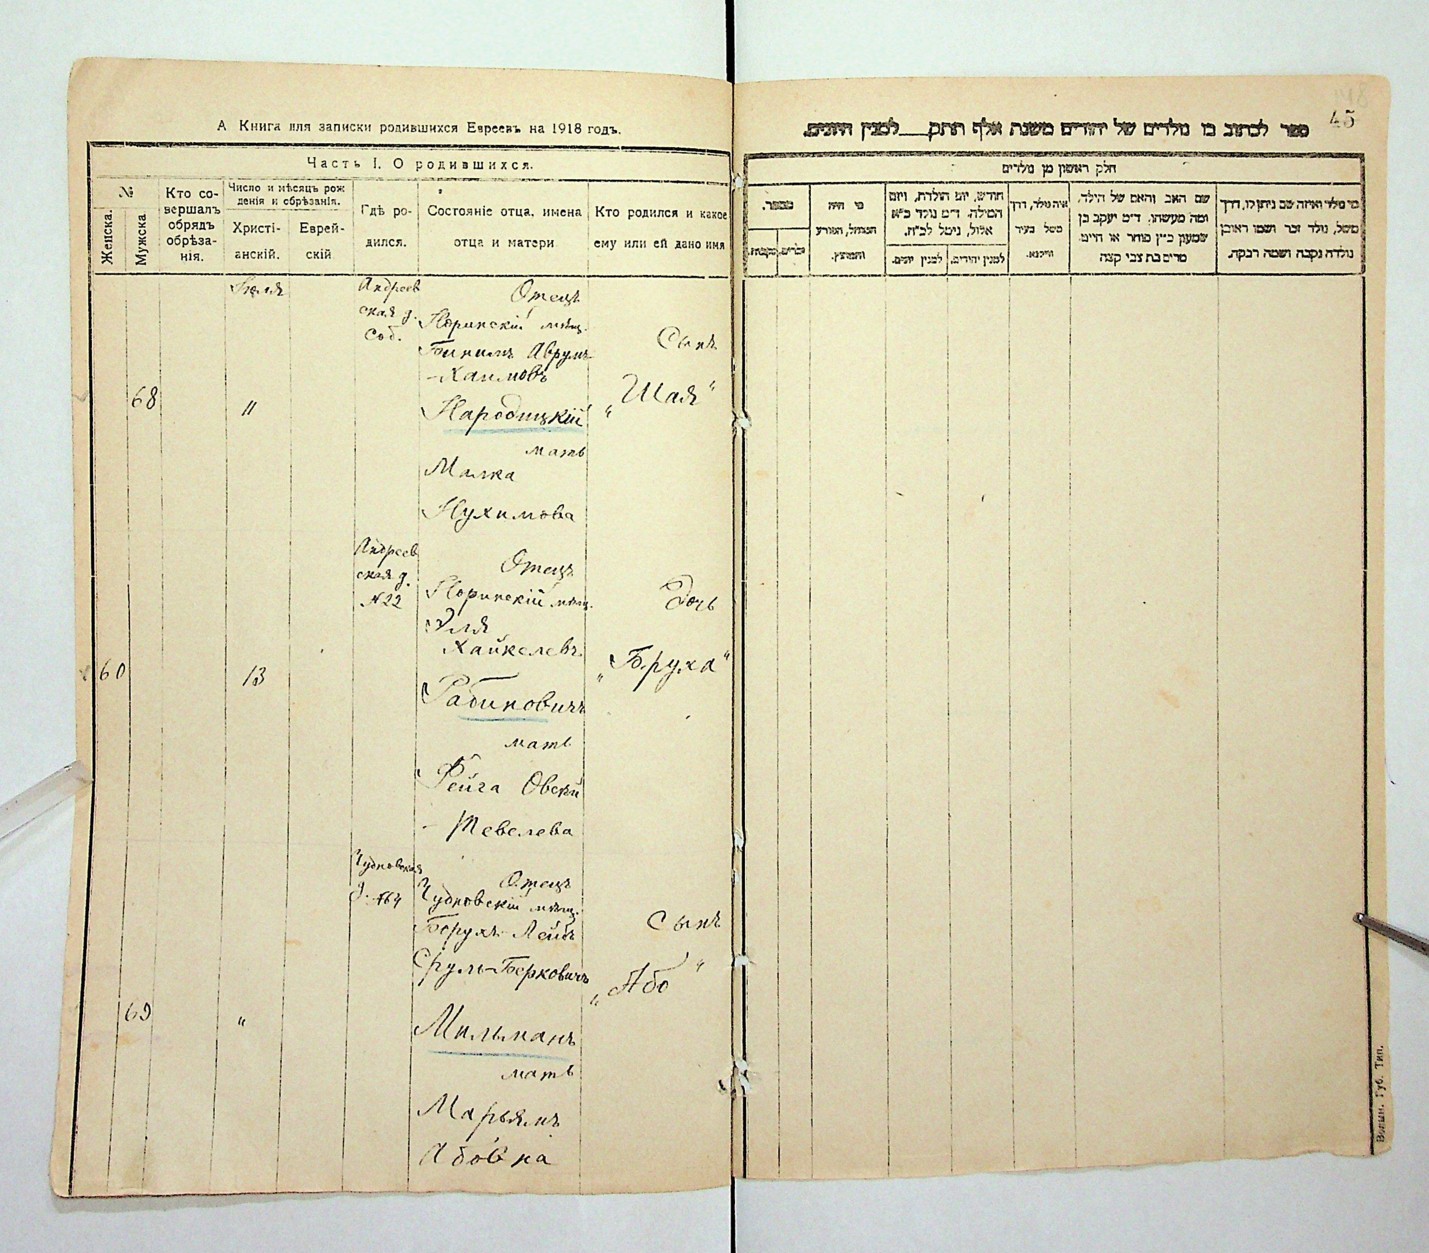 А Книга для записки родившихся Евреевъ на 1918 годъ.
Часть I. О родившихся.
№
Женска.
Мужска
Кто со-
вершалъ
обрядъ
обрѣза-
нія.
Число и мѣсяцъ рож
денія и обрѣзанія.
Христі-
анскій.
Еврей-
скій
Гдѣ ро-
дился.
Состояніе отца, имена
отца и матери
Кто родился и какое
ему или ей дано имя
68
Іюля
11
Андреев
ская д.
Соб.
Отецъ
Норинскій мѣщ.
Аврумъ
-Хаимовъ
Народицкій
мать
Малка
Нухимова
Сынъ
„Шая"
60
13
Андреев
ская д.
№22
Отецъ
Норинскій мѣщ.
Эля
Хайкелевъ
Рабиновичъ
мать
Фейга
-Тевелева
Дочь
„Бруха"
69
"
Чудновская
д. №64
Отецъ
Чудновскій мѣщ.
Борухъ-Лейбъ
Сруль-Берковичъ
Мильманъ
мать
Марьямъ
Абовна
Сынъ
„Або"
45
ספר לכתוב בו נולדים של יהודים משנת אלף תתק___למנין היונים.
חלק ראשון מן נולדים
מספר.
זכרים.
נקבות.
מי היה
המוהל, הפורע
והמוצץ.
חודש, יום הולדת, ויום
המילה. ד״מ נולד כ״א
אלול, ניטל לכ״ח.
למנין יונים.
למנין יהודים.
איה נולד, דרך
משל בעיר
ווילנא.
שם האב והאם של הילד,
ומה מעשהו. ד״מ יעקב בן
שמעון כ״ץ סוחר או חייט
מרים בת צבי קצה
מי נולד ואיזה שם ניתן לו, דרך
משל, נולד זכר ושמו ראובן
נולדה נקבה ושמה רבקה.
Волын. Губ. Тип.